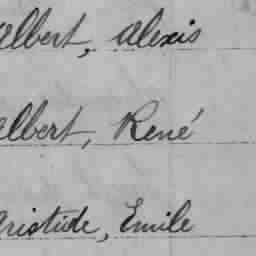 Albert, Alexis
Albert, René
Aristide, Emile